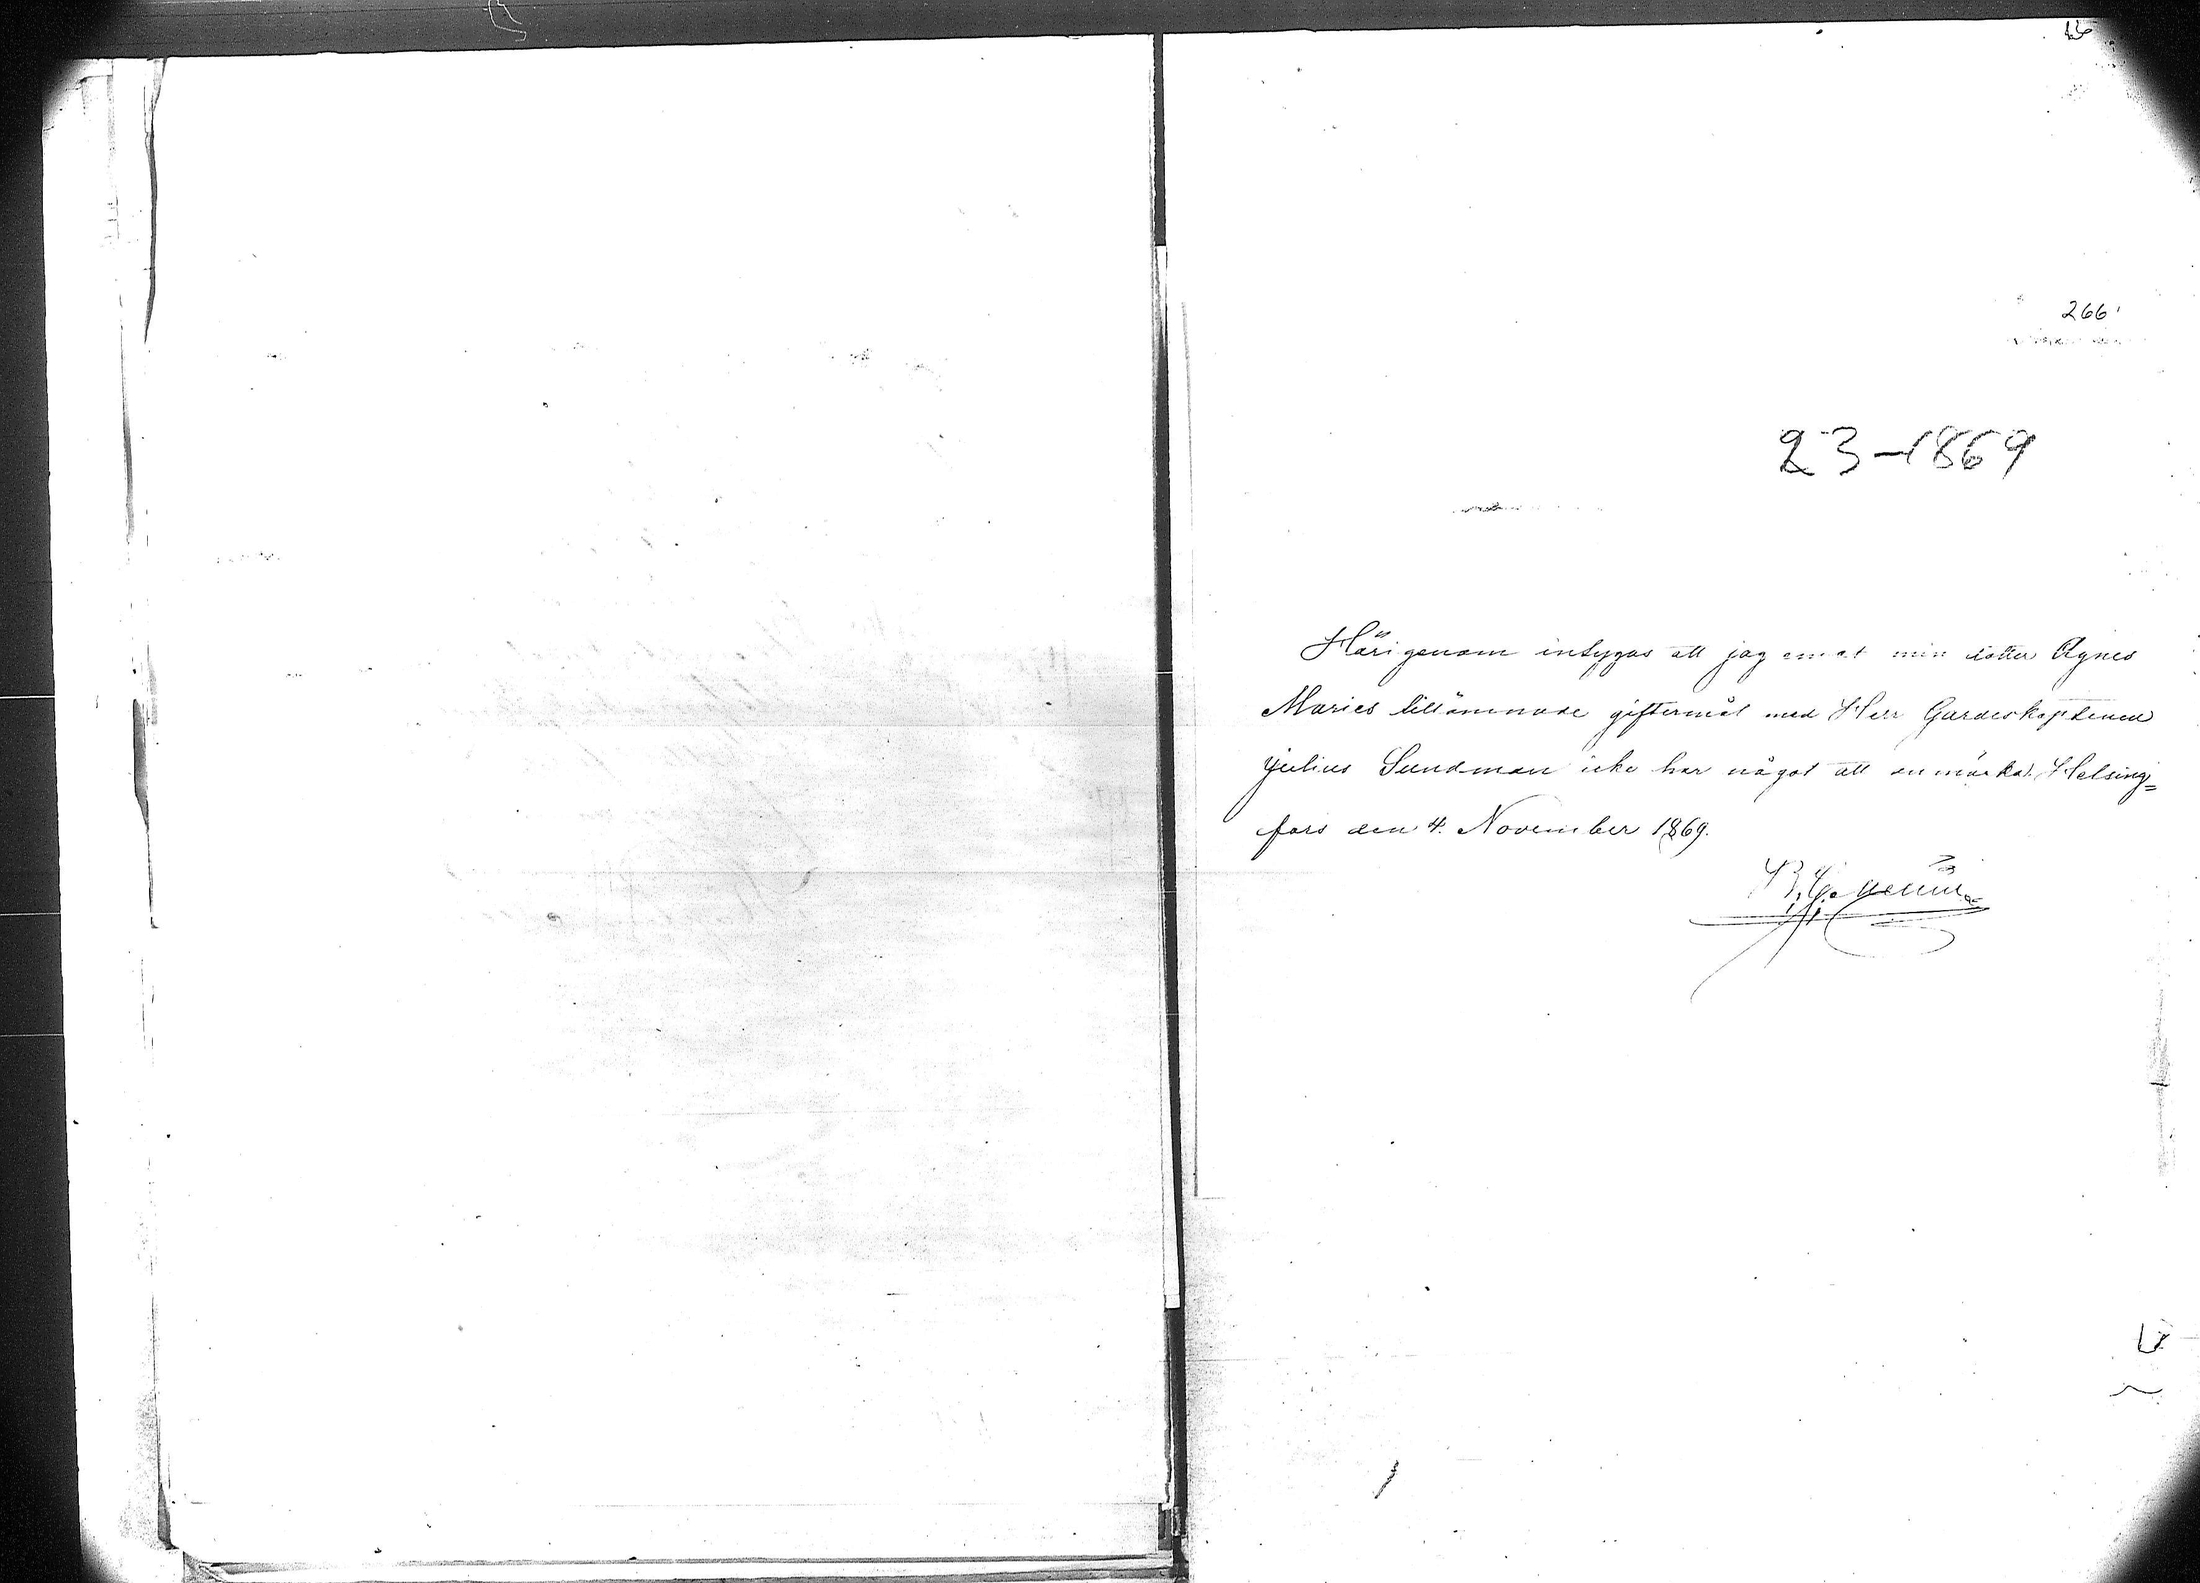 266
23-1869
Härigenom intygas att jag emot min dotter Agnes
Maries tillämnade giftermål med Herr Gardeskaptenen
Julius Sundman icke har något att anmärka. Helsing=
fors den 4. November 1869.